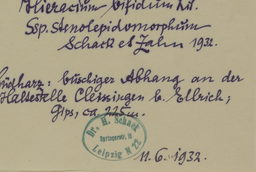 Hieracium bifidum Kit.
Ssp. stenolepidomorphum
Schack et Zahn 1932.
Südharz: buschiger Abhang an der
Haltestelle Cleissingen b. Ellrich,
Gips, ca. 225 m.
Dr. H. Schack
Leipzig N 22
11.6.1932.